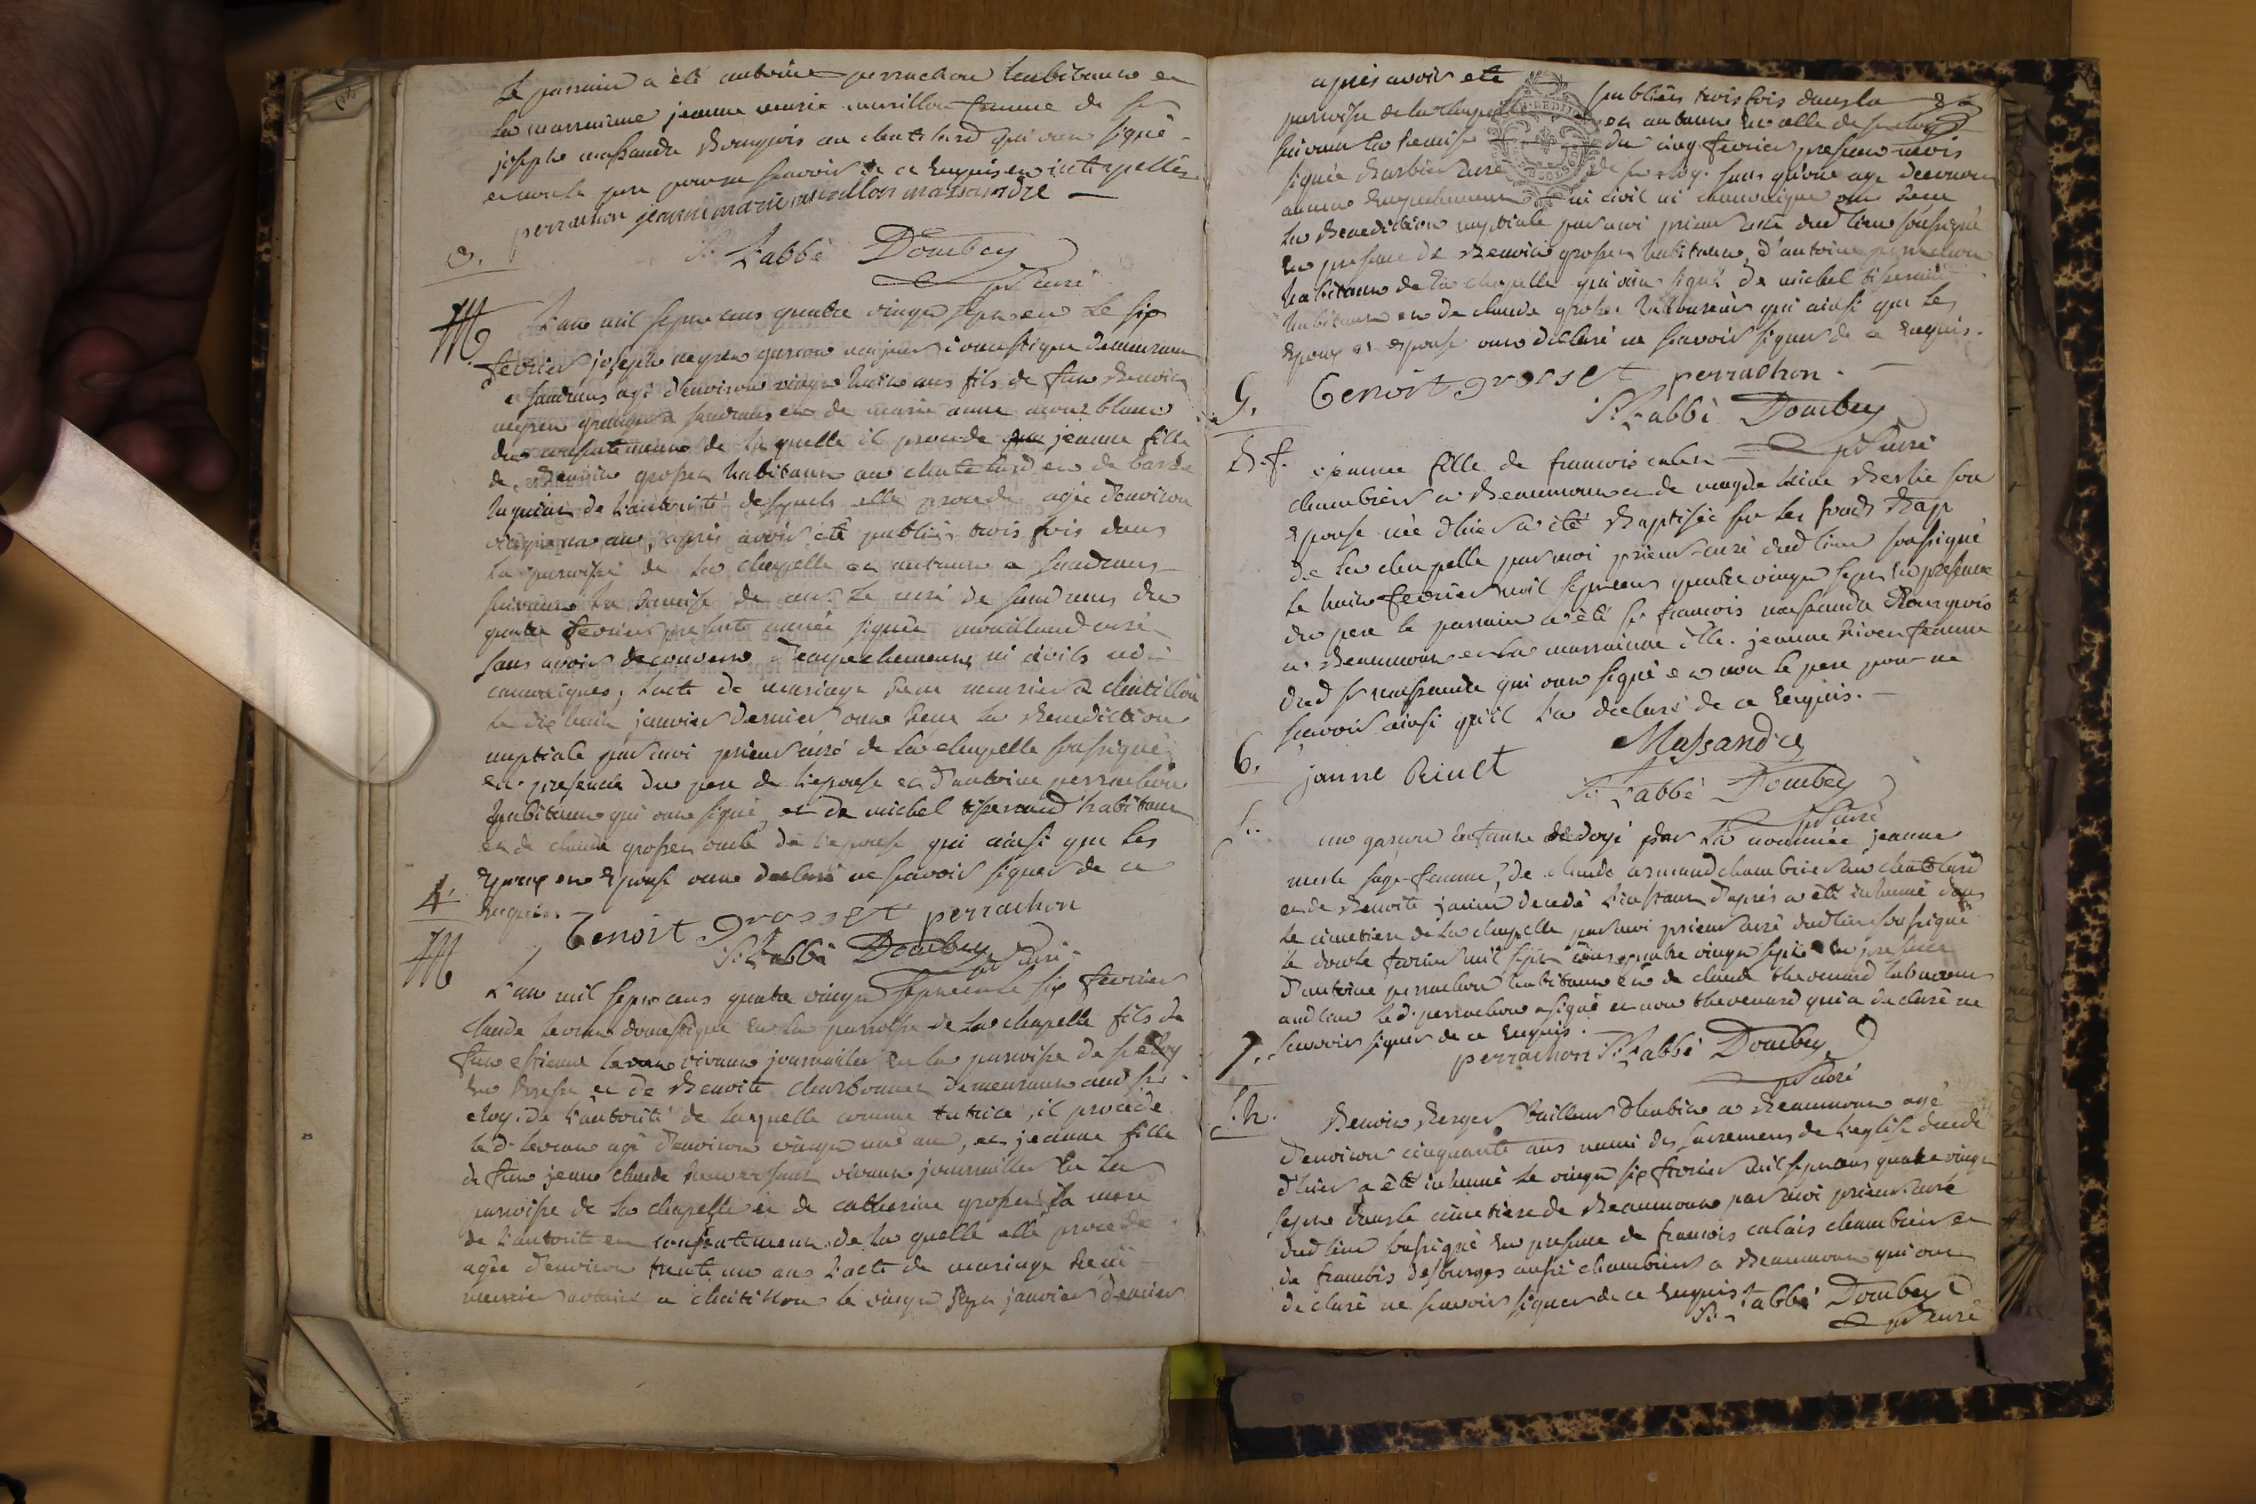 Le parrain a été antoine perrachon habitant et
la marraine jeanne marie murillon femme de sr
joseph massandre Bourgeois au chatelard qui ont signé
et non le pere pour ne sçavoir de ce Enquis et interpellés
perrachon jeanne marie murillon massandre
3.
Sr. L'abbé Dombey
pr curé
M L'an mil sept cens quatre vingt sept et le six
fevrier joseph neyret garçon majeur domestique demeurant
a sandrans agé d'environ vingt huit ans fils de feu Benoit
neyret a sandrans et de marie anne montblanc
du consentement de laquelle il procede jeanne fille
de Benoit grosset habitant au chatelard et de
de l'autorité desquels elle procede agée d'environ
vingt un an, après avoir été publiés trois fois dans
la parroisse de La chapelle et autant a sandrans
suivant la Remise de mr Le curé de sandrans du
quatre fevrier presente année signée curé
sans avoir decouvert d'empechement ni civils ni
canoniques, l'acte de mariage Reçu meunier a chatillon
le dix huit janvier dernier ont Reçu La Benediction
nuptiale par moi prieur curé de La chapelle soussigné
en presence du pere de l'epouse et d'antoine perrachon
habitant qui ont signé, et de michel tiserand habitant
et de claude grosset oncle de l'epouse qui ainsi que les
Epoux et Epouse ont declaré ne sçavoir signer de ce
4. Enquis.
Benoit grosset perrachon
Sr. L'abbé Dombey pr curé
M L'an mil sept cens quatre vingt sept et le six fevrier
claude levrat domestique En La parroisse de La chapelle fils de
feu estienne levrat vivant journailler En la parroisse de st eloy
En Bresse et de Benoite charbonnet demeurant aud st
eloy. de L'autorité de Laquelle comme tutrice, il procede
led. levrat agé d'environ vingt un an, et jeanne fille
de feu jean claude vivant journaillier En La
parroisse de La chapelle et de catherine grosset sa mere
de l'autorité et consentement de la quelle elle procede
agée d'environ trente un ans L'acte de mariage Reçu
meunier notaire a chatillon le vingt sept janvier dernier
après avoir été publiés trois fois dans la
parroisse de La chapelle et autant En celle de st eloy
suivant la Remise du cinq fevrier present mois
signée Barbier curé de st eloy. sans qu'on aye decouvert
aucun Empechement ni civil ni canonique ont Reçu
La Benediction nuptiale par moi prieur curé dud lieu soussigné
En presence de Benoit grosset habitant, d'antoine perrachon
habitant de La chapelle qui ont signé de michel tiserand
habitant et de claude grosset laboureur qui ainsi que les
Epoux et epouse ont declaré ne sçavoir signer de ce enquis.
5. Benoit grosset perrachon.
Sr. L'abbé Dombey
pr curé
B.f. jeanne fille de francois calais
chambrier a Beaumont et de magdelaine Berlie son
Epouse née d'hier a été Baptisée sur les fonds Bap
de La chapelle par moi prieur curé dud lieu soussigné
le huit fevrier mil sept cens quatre vingt sept En presence
du pere le parrain a été sr francois massandre Bourgeois
a Beaumont et La marraine dlle. jeanne Rivet femme
dud sr massandre qui ont signé et non le pere pour ne
sçavoir ainsi qu'il L'a declaré de ce Enquis.
Massandre
6. janne Riuet
Sr. L'abbé Dombey
pr curé
S. un garcon Enfant ondoyé par La nommée jeanne
merle sage femme, de claude armand chambrier au chatelard
et de Benoite janin decedé l'instant d'après a été inhumé dans
le cimetiere de La chapelle par moi prieur curé dud lieu soussigné
le douze fevrier mil sept cens quatre vingt sept En presence
d'antoine perrachon habitant et de claude thevenard laboureur
aud lieu led. perrachon a signé et non thevenard qui a declaré ne
sçavoir signer de ce Enquis.
7. perrachon Sr. L'abbé Dombey
pr curé
S.h. Benoit Berger tailleur d'habits a Beaumont agé
d'environ cinquante ans muni des sacremens de L'eglise decedé
d'hier a été inhumé le vingt six fevrier mil sept cens quatre vingt
sept dans le cimetiere de Beaumont par moi prieur curé
dud lieu soussigné En presence de francois calais chambrier et
de francois desburges aussi chambrier a Beaumont qui ont
declaré ne sçavoir signer de ce Enquis
Sr. L'abbé Dombey
pr curé